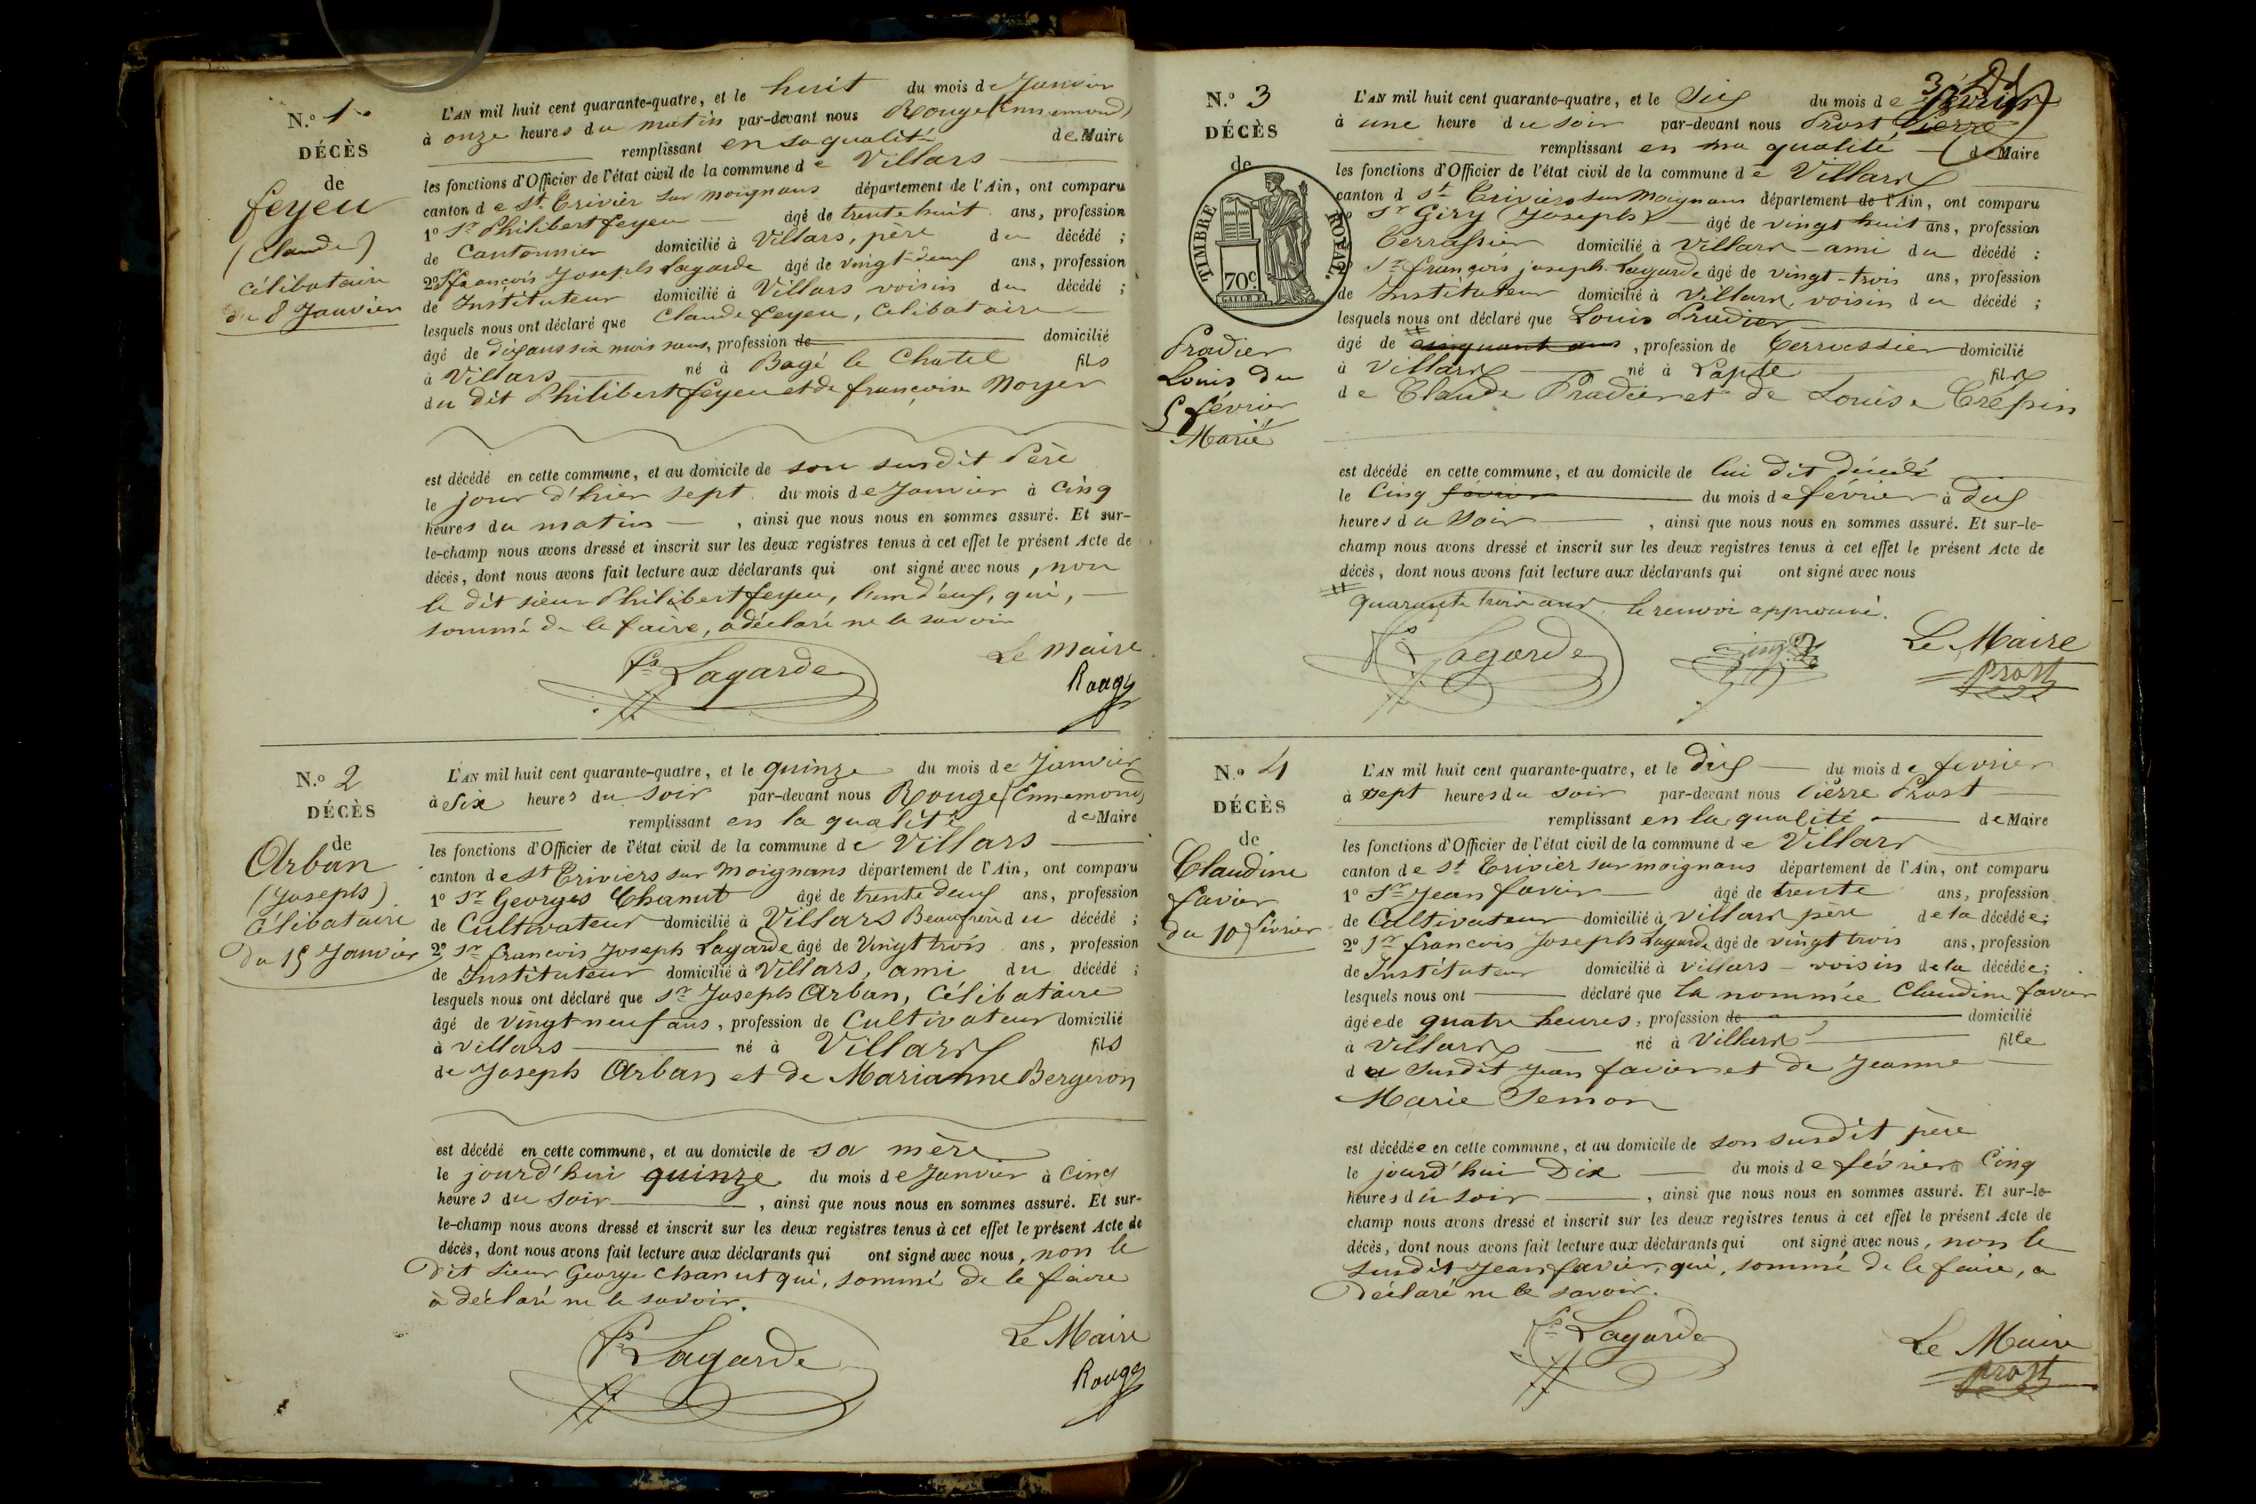 N.º 1.
DÉCÈS
de
feyeu
(Claude)
célibataire
du 8 Janvier
L'AN mil huit cent quarante-quatre, et le huit du mois de Janvier
à onze heures du matin par-devant nous Rouge (Ennemond)
remplissant en sa qualité de Maire
les fonctions d'Officier de l'état civil de la commune de Villars
canton de St. Trivier sur moignans département de l'Ain, ont comparu
1º Sr Philibert feyeu âgé de trente huit ans, profession
de Cantonnier domicilié à Villars, père du décédé ;
2º Sr francois Joseph Lagarde âgé de vingt-deux ans, profession
de Instituteur domicilié à Villars voisin du décédé ;
lesquels nous ont déclaré que Claude feyeu, Célibataire
âgé de dix ans six mois, profession de domicilié
à Villars né à Bagé le Chatel fils
du dit Philibert feyeu et de françoise Noyer
est décédé en cette commune, et au domicile de son susdit Père
le jour d'hier sept du mois de Janvier à Cinq
heures du matin , ainsi que nous nous en sommes assuré. Et sur-
le-champ nous avons dressé et inscrit sur les deux registres tenus à cet effet le présent Acte de
décès, dont nous avons fait lecture aux déclarants qui ont signé avec nous, non
le dit sieur Philibert feyeu, l'un d'eux, qui,
sommé de le faire, a déclaré ne le savoir
Le Maire
fs Lagarde
Rouge
N.º 2
DÉCÈS
de
Arban
(Joseph)
Célibataire
Du 15 Janvier
L'AN mil huit cent quarante-quatre, et le quinze du mois de Janvier
à Six heures du Soir par-devant nous Rouge (Ennemond)
remplissant en la qualité de Maire
les fonctions d'Officier de l'état civil de la commune de Villars
canton de St Triviers sur Moignans département de l'Ain, ont comparu
1º Sr Georges Chanut âgé de trente deux ans, profession
de Cultivateur domicilié à Villars Beaufrère du décédé ;
2º Sr francois Joseph Lagarde âgé de Vingt trois ans, profession
de Instituteur domicilié à Villars, ami du décédé ;
lesquels nous ont déclaré que Sr Joseph Arban, Célibataire
âgé de vingt neuf ans, profession de Cultivateur domicilié
à villars né à Villars fils
de Joseph Arban et de Marianne Bergeron
est décédé en cette commune, et au domicile de sa mère
le jourd'hui quinze du mois de Janvier à Cinq
heures du soir , ainsi que nous nous en sommes assuré. Et sur-
le-champ nous avons dressé et inscrit sur les deux registres tenus à cet effet le présent Acte de
décès, dont nous avons fait lecture aux déclarants qui ont signé avec nous, non le
Dit Sieur George Chanut qui, sommé de le faire
a déclaré ne le savoir.
Le Maire
fs Lagarde
Rouge
N.º 3
DÉCÈS
de
TIMBRE ROYAL.
70c
Pradier
Louis du
5 février
Marié
L'AN mil huit cent quarante-quatre, et le Six du mois de février
à une heure du soir par-devant nous Prost Pierre
remplissant en sa qualité de Maire
les fonctions d'Officier de l'état civil de la commune de Villars
canton d St Triviers sur Moignans département de l'Ain, ont comparu
Sr Giry (Joseph) âgé de vingt huit ans, profession
Terrassier domicilié à Villars ami du décédé ;
Sr françois joseph Lagarde âgé de vingt-trois ans, profession
de Instituteur domicilié à Villars, voisin du décédé ;
lesquels nous ont déclaré que Louis Pradier
âgé de cinquant ans, profession de Terrassier domicilié
à Villars né à Lapte fils
de Claude Pradier et de Louise Crépin
est décédé en cette commune, et au domicile de lui dit décédé
le Cinq février du mois de février à dix
heures du soir , ainsi que nous nous en sommes assuré. Et sur-le-
champ nous avons dressé et inscrit sur les deux registres tenus à cet effet le présent Acte de
décès, dont nous avons fait lecture aux déclarants qui ont signé avec nous
quarante trois ans. le renvoi approuvé.
Le Maire
fs Lagarde
Prost
N.º 4
DÉCÈS
de
Claudine
favier
du 10 février
L'AN mil huit cent quarante-quatre, et le Dix du mois de février
à sept heures du soir par-devant nous Pierre Prost
remplissant en la qualité de Maire
les fonctions d'Officier de l'état civil de la commune de Villars
canton de St Trivier sur moignans département de l'Ain, ont comparu
1º Sr Jean favier âgé de trente ans, profession
de Cultivateur domicilié à Villars père de la décédée;
2º Sr francois Joseph Lagarde âgé de vingt trois ans, profession
de Instituteur domicilié à villars - voisin de la décédée;
lesquels nous ont déclaré que la nommée Claudine favier
âgée de quatre heures, profession de domicilié
à Villars né à Villars fille
du susdit jean favier et de Jeanne
Marie Semon
est décédée en cette commune, et au domicile de son susdit père
le jourd'hui Dix du mois de février à Cinq
heures du soir , ainsi que nous nous en sommes assuré. Et sur-le-
champ nous avons dressé et inscrit sur les deux registres tenus à cet effet le présent Acte de
décès, dont nous avons fait lecture aux déclarants qui ont signé avec nous, non le
susdit Jean favier, qui, sommé de le faire, a
Déclaré ne le savoir.
fs Lagarde
Le Maire
Prost